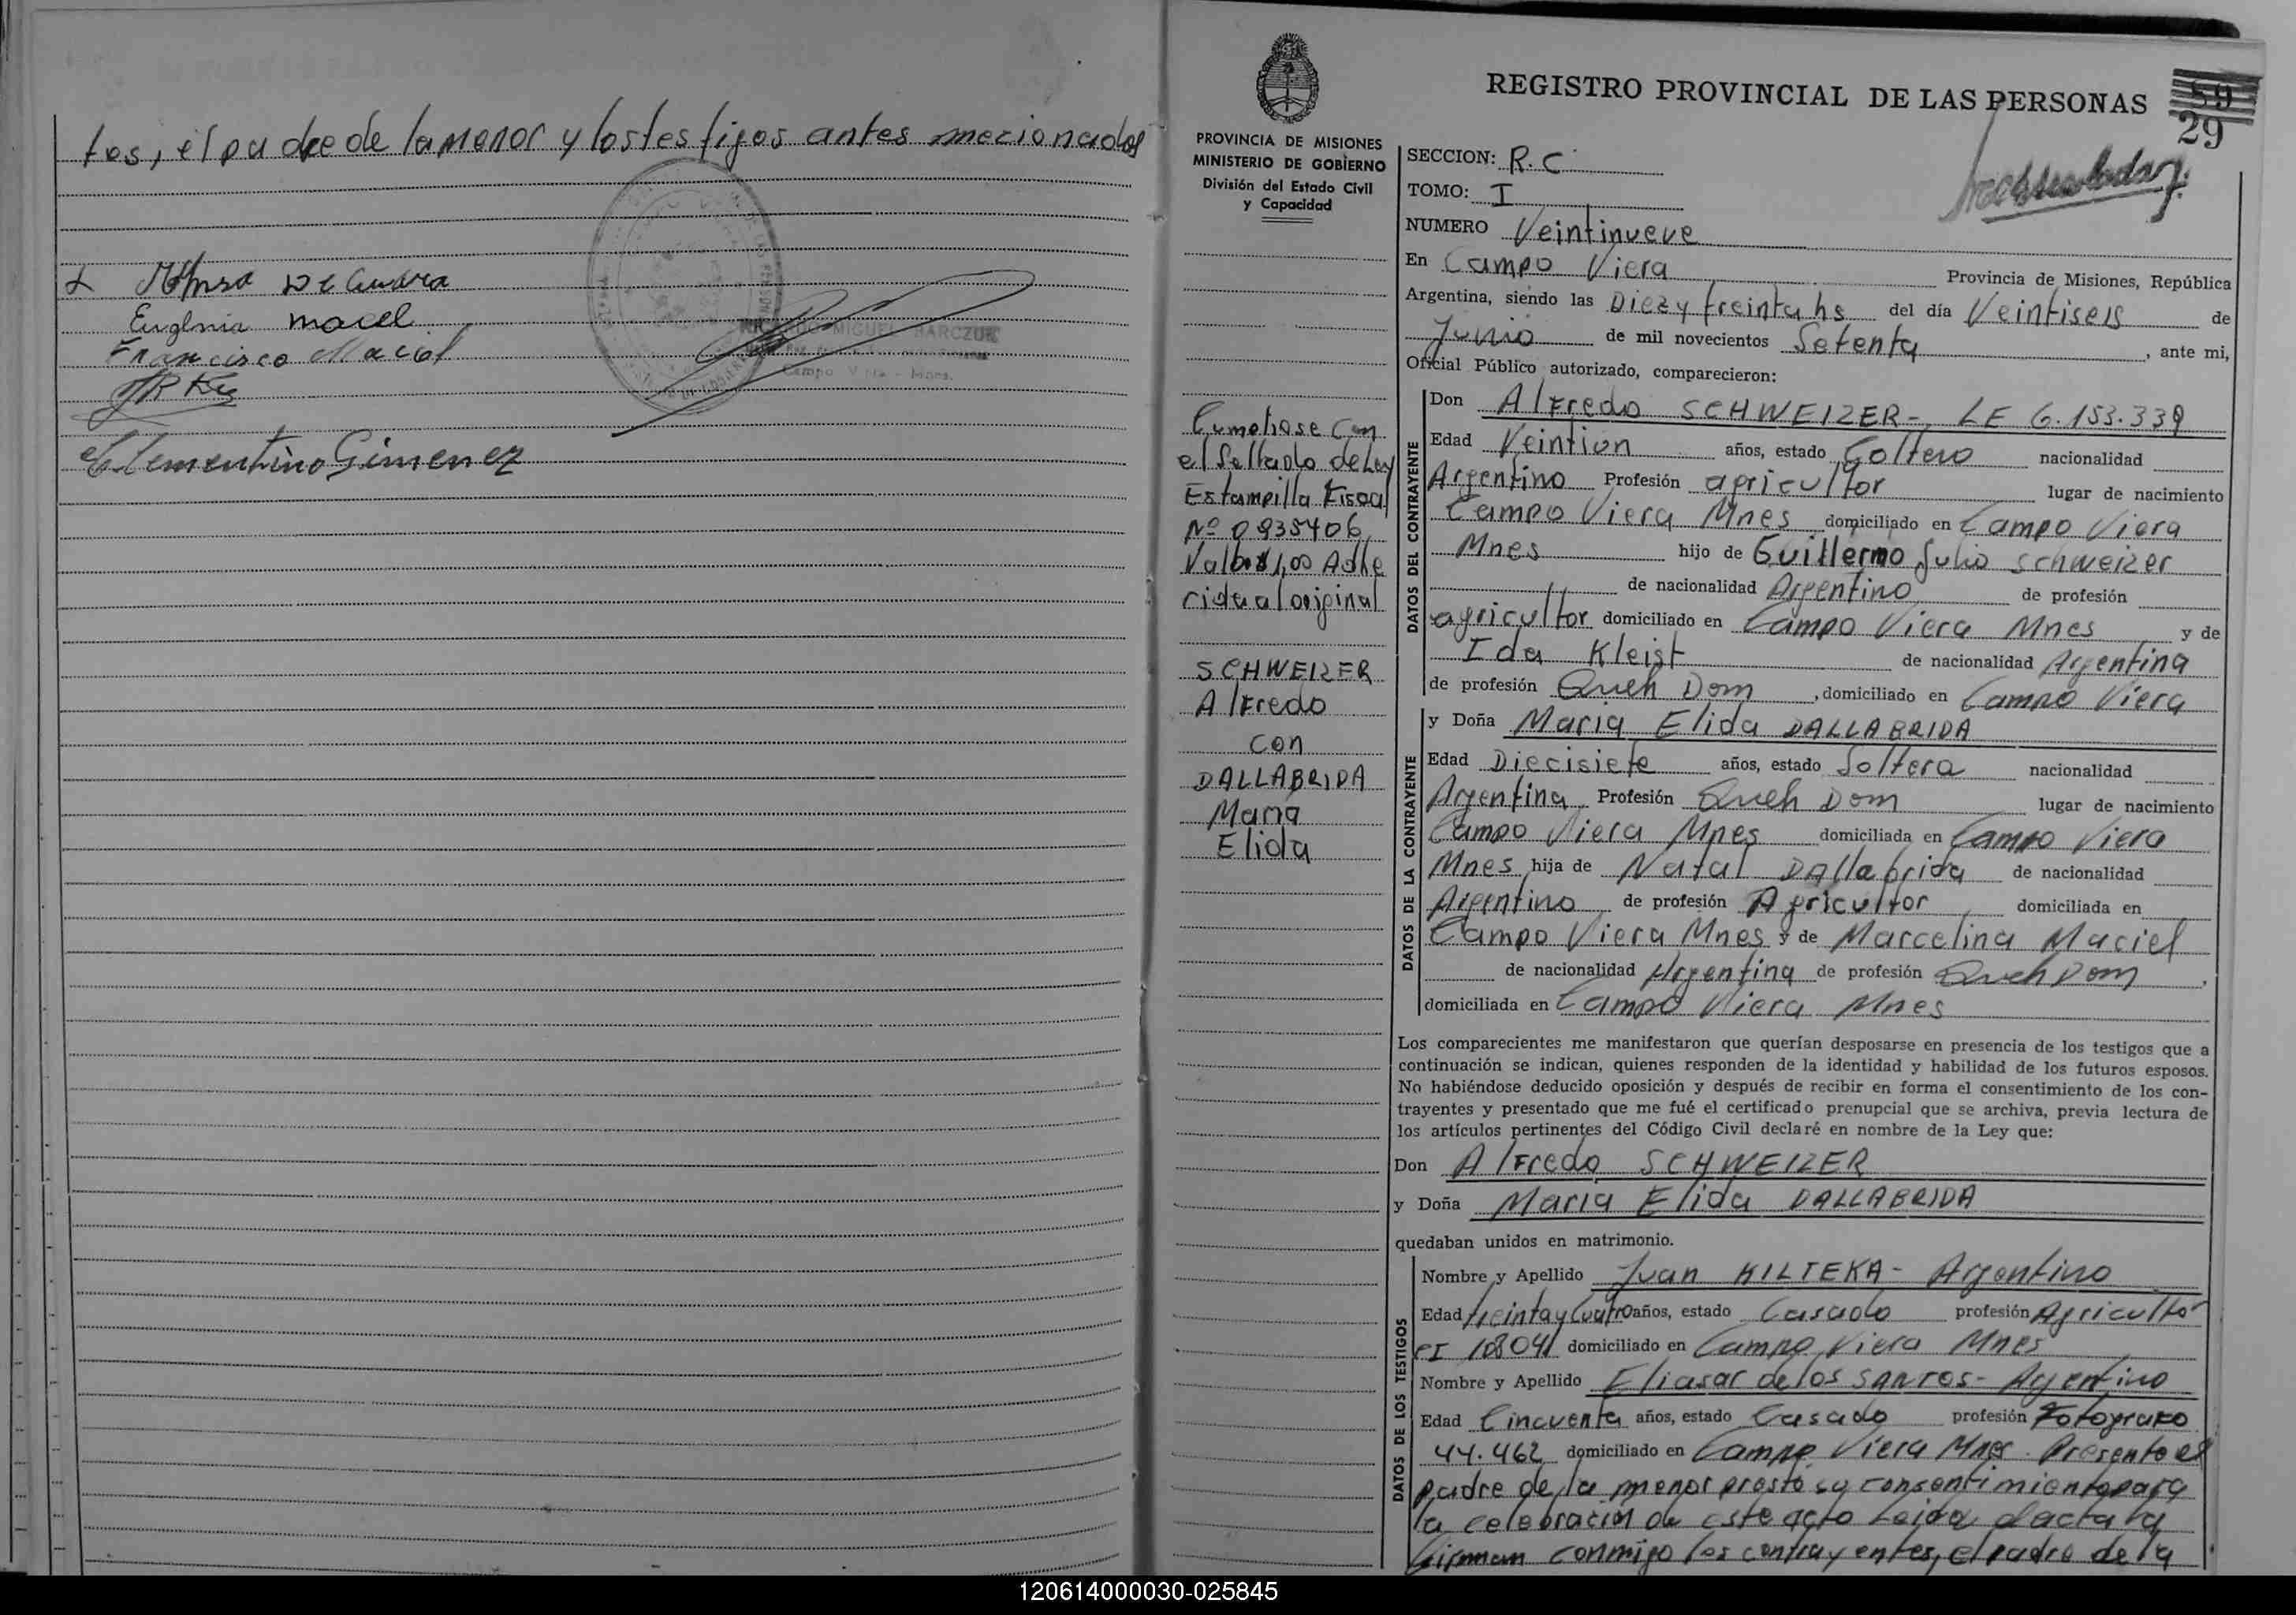 tos, el padre de la menor y los testigos antes mecionados
Eugenia macel
Francisco Maciel
Clementino Gimenez
MIGUEL BARCZUK
Campo Viera - Mnes.
PROVINCIA DE MISIONES
MINISTERIO DE GOBIERNO
División del Estado Civil
y Capacidad
Cumplase Con
el Sellado de Ley
Estampilla Fiscal
Nº 0935406
Valor $ 1,00 Adhe
rida al original
SCHWEIZER
Alfredo
con
DALLABRIDA
Maria
Elida
REGISTRO PROVINCIAL DE LAS PERSONAS
59
29
SECCION: R.C
TOMO: I
NUMERO Veintinueve
En Campo Viera Provincia de Misiones, República
Argentina, siendo las Diez y treinta hs del día Veintiseis de
Junio de mil novecientos Setenta, ante mi,
Oficial Público autorizado, comparecieron:
DATOS DEL CONTRAYENTE
Don Alfredo SCHWEIZER- LE 6.153.339
Edad Veintiun años, estado Soltero nacionalidad
Argentino Profesión agricultor lugar de nacimiento
Campo Viera Mnes domiciliado en Campo Viera
Mnes hijo de Guillermo Julio Schweizer
de nacionalidad Argentino de profesión
agricultor domiciliado en Campo Viera Mnes y de
Ida Kleist de nacionalidad Argentina
de profesión Queh Dom, domiciliado en Campo Viera
DATOS DE LA CONTRAYENTE
y Doña Maria Elida DALLABRIDA
Edad Diecisiete años, estado Soltera nacionalidad
Argentina Profesión Queh Dom lugar de nacimiento
Campo Viera Mnes domiciliada en Campo Viera
Mnes hija de Natal DAllabrida de nacionalidad
Argentino de profesión Agricultor domiciliada en
Campo Viera Mnes y de Marcelina Maciel
de nacionalidad Argentina de profesión Queh Dom,
domiciliada en Campo Viera Mnes
Los comparecientes me manifestaron que querían desposarse en presencia de los testigos que a
continuación se indican, quienes responden de la identidad y habilidad de los futuros esposos.
No habiéndose deducido oposición y después de recibir en forma el consentimiento de los con-
trayentes y presentado que me fué el certificado prenupcial que se archiva, previa lectura de
los artículos pertinentes del Código Civil declaré en nombre de la Ley que:
Don Alfredo SCHWEIZER
y Doña Maria Elida DALLABRIDA
quedaban unidos en matrimonio.
DATOS DE LOS TESTIGOS
Nombre y Apellido Juan KILTEKA- Argentino
Edad treinta y Cuatro años, estado Casado profesión Agricultor
CI domiciliado en Campo Viera Mnes
Nombre y Apellido Eliasar de los SANTOS- Argentino
Edad Cincuenta años, estado Casado profesión Fotografo
44.462 domiciliado en Campo Viera Mnes. Presente el
padre de la menor prestó su consentimiento para
la celebración de este acto Leida el acta la
firman conmigo los contrayentes, el padre de la
120614000030-025845